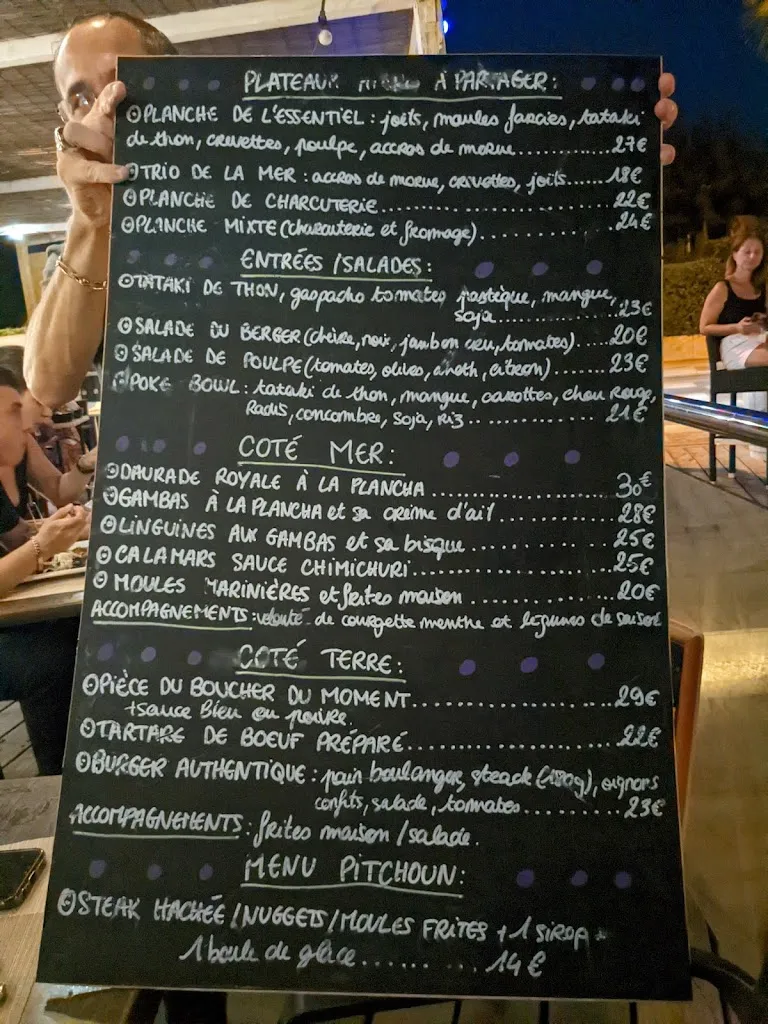 PLATEAUX À PARTAGER:
PLANCHE DE L'ESSENTIEL: joels, moules farcies, tataki
de thon, crevettes, poulpe, accras de morue..........27€
TRIO DE LA MER: accras de morue, crevettes, joels......18€
PLANCHE DE CHARCUTERIE..........22€
PLANCHE MIXTE (charcuterie et fromage)..........24€
ENTRÉES/SALADES:
TATAKI DE THON, gaspacho tomates pastèque, mangue,
soja..........23€
SALADE DU BERGER (chèvre, noix, jambon cru, tomates)....20€
SALADE DE POULPE (tomates, olives, aneth, citron)......23€
POKE BOWL: tataki de thon, mangue, carottes, chou Rouge,
Radis, concombre, Soja, Riz..........21€
COTÉ MER:
DAURADE ROYALE À LA PLANCHA..........30€
GAMBAS À LA PLANCHA et sa crème d'ail..........28€
LINGUINES AUX GAMBAS et sa bisque..........25€
CALAMARS SAUCE CHIMICHURI..........25€
MOULES MARINIÈRES et frites maison..........20€
ACCOMPAGNEMENTS: velouté de courgette menthe et légumes de saison
COTÉ TERRE:
PIÈCE DU BOUCHER DU MOMENT..........29€
+sauce Bleu ou poivre.
TARTARE DE BOEUF PRÉPARÉ..........22€
BURGER AUTHENTIQUE: pain boulanger, steack (180g), oignons
confits, salade, tomates..........23€
ACCOMPAGNEMENTS: frites maison/salade.
MENU PITCHOUN:
STEAK HACHÉE/NUGGETS/MOULES FRITES +1 SIROP +
1 boule de glace..........14€